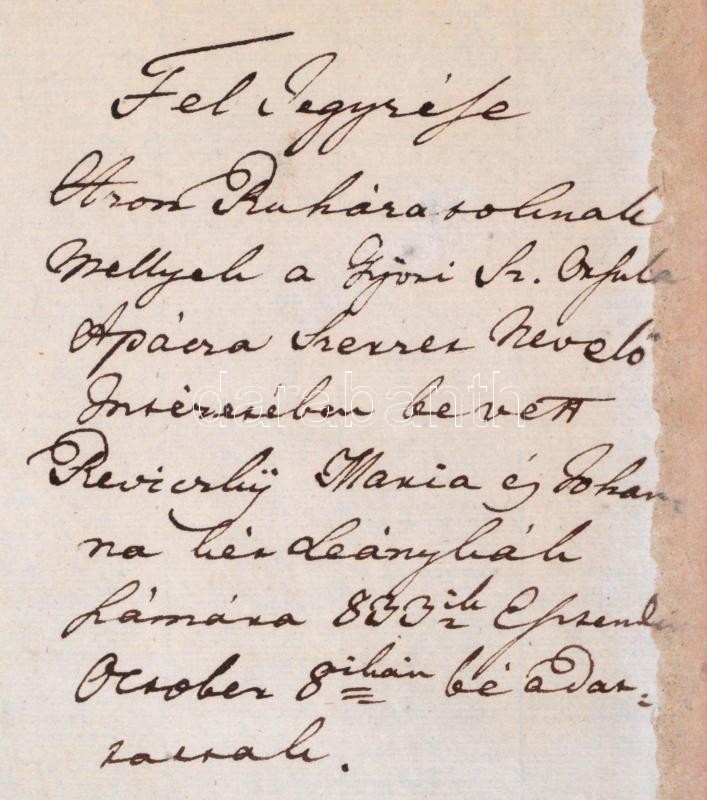 Fel Jegyzése
Azon Ruházatoknak
Mellyek a Győri Sz. Orsula
Apácza Szerzet Nevelő
Intézetében be vett
Reviczkÿ Maria és Johan-
na két Leánykák
számára 833ik Esztendő
October 8ikán bé adat=
tattak.
darabanth